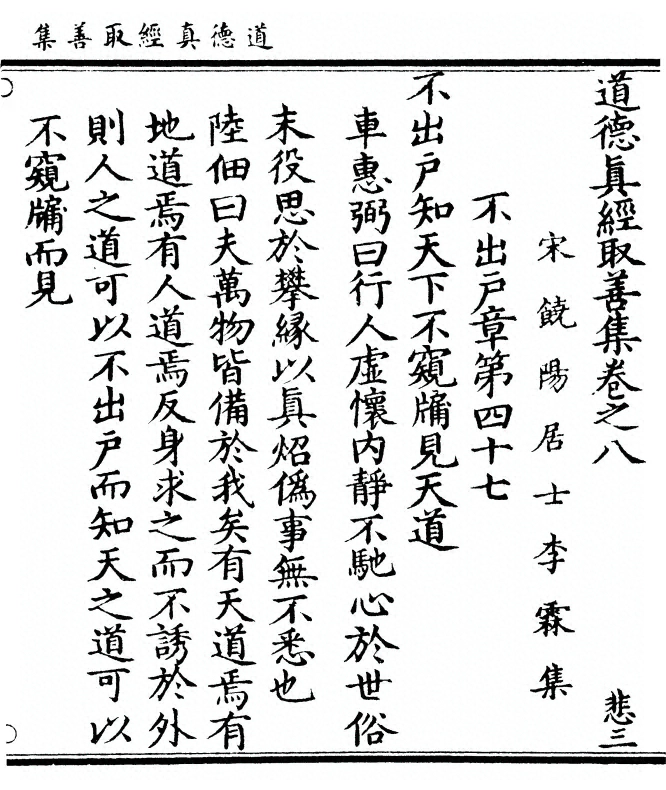 道德真經取善集
道德眞經取善集卷之八
悲三
宋饒陽居士李霖集
不出戶章第四十七
不出戶知天下不窺牖見天道
車惠弼曰行人虛懷內靜不馳心於世俗
末役思於攀緣以眞炤僞事無不悉也
陸佃曰夫萬物皆備於我矣有天道焉有
地道焉有人道焉反身求之而不誘於外
則人之道可以不出戶而知天之道可以
不窺牖而見